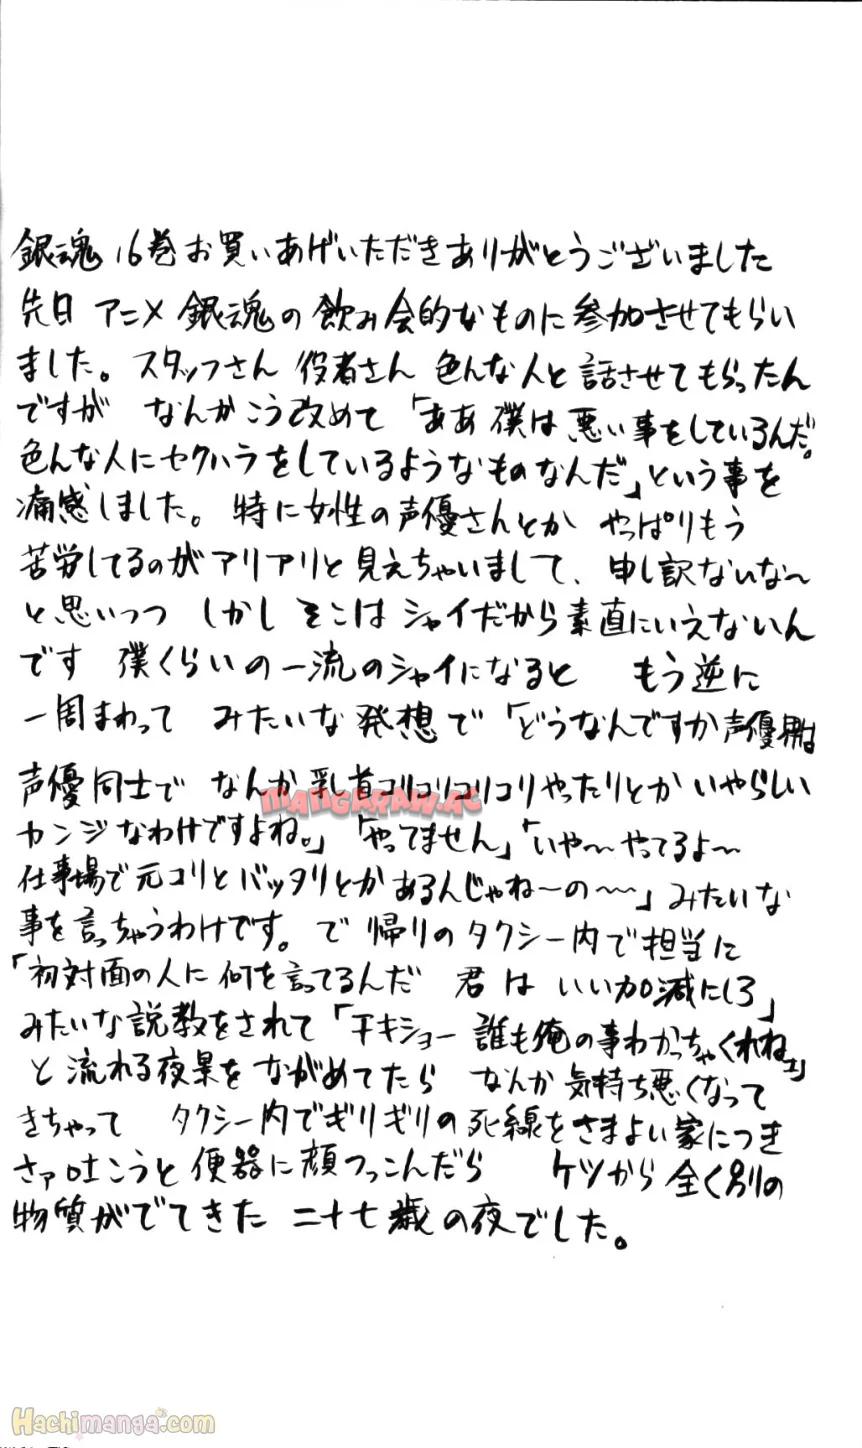 銀魂 16巻お買いあげいただきありがとうございました
先日 アニメ 銀魂の飲み会的なものに参加させてもらい
ました。スタッフさん 役者さん 色んな人と話させてもらったん
ですが なんかこう改めて「ああ僕は悪い事をしているんだ。
色んな人にセクハラをしているようなものなんだ」という事を
痛感しました。特に女性の声優さんとか やっぱりもう
苦労してるのがアリアリと見えちゃいまして、申し訳ないな〜
と思いつつ しかし そこは シャイだから素直にいえないん
です 僕くらいの一流のシャイになると もう逆に
一周まわって みたいな発想で「どうなんですか声優界は
声優同士で なんか乳首コリコリコリコリやったりとか いやらしい
カンジなわけですよね。」「やってません」「いや〜やってるよ〜
仕事場で元コリとバッタリとかあるんじゃね〜の〜〜」みたいな
事を言っちゃうわけです。で 帰りのタクシー内で担当に
「初対面の人に何を言ってるんだ 君は いい加減にしろ」
みたいな説教をされて「チキショー 誰も俺の事わかっちゃくれねェ」
と流れる夜景をながめてたら なんか気持ち悪くなって
きちゃって タクシー内でギリギリの死線をさまよい家につき
さァ吐こうと便器に顔つっこんだら ケツから全く別の
物質がでてきた 二十七歳の夜でした。
MANGARAW.AC
Hachimanga.com